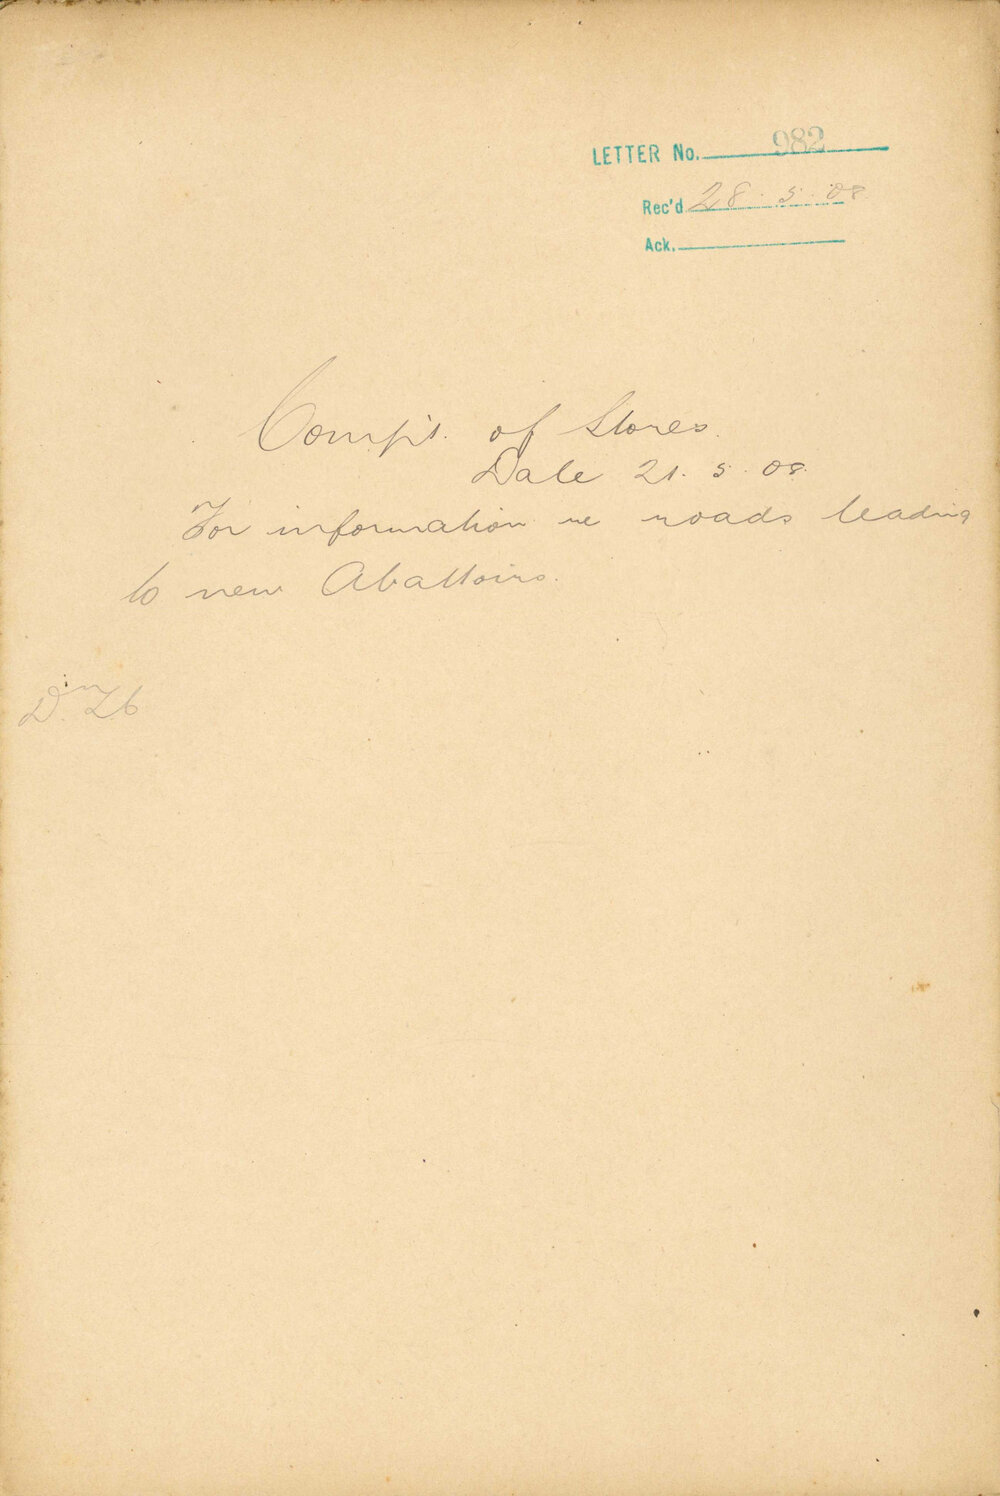 LETTER No. 982
Rec'd 28. 5. 08
Ack.
Comp't. of Stores.
Date 21. 5. 08.
For information re roads leading
to new Abattoirs.